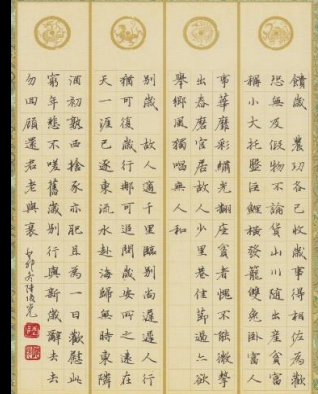 饋歲 農功各已收歲事得相佐為歡
恐無及假物不論貨山川隨出產貧富
稱小大托盤巨鯉橫發籠雙兔臥富人
事華靡彩繡光翻座貧者愧不能微摯
出舂磨官居故人少里巷佳節過亦欲
舉鄉風獨唱無人和
別歲 故人適千里臨別尚遲遲人行
猶可復歲行那可追問歲安所之遠在
天一涯已逐東流水赴海歸無時東隣
酒初熟西捨豕亦肥且為一日歡慰此
窮年悲不嗟舊歲別行與新歲辭去去
勿回顧還君老與衰